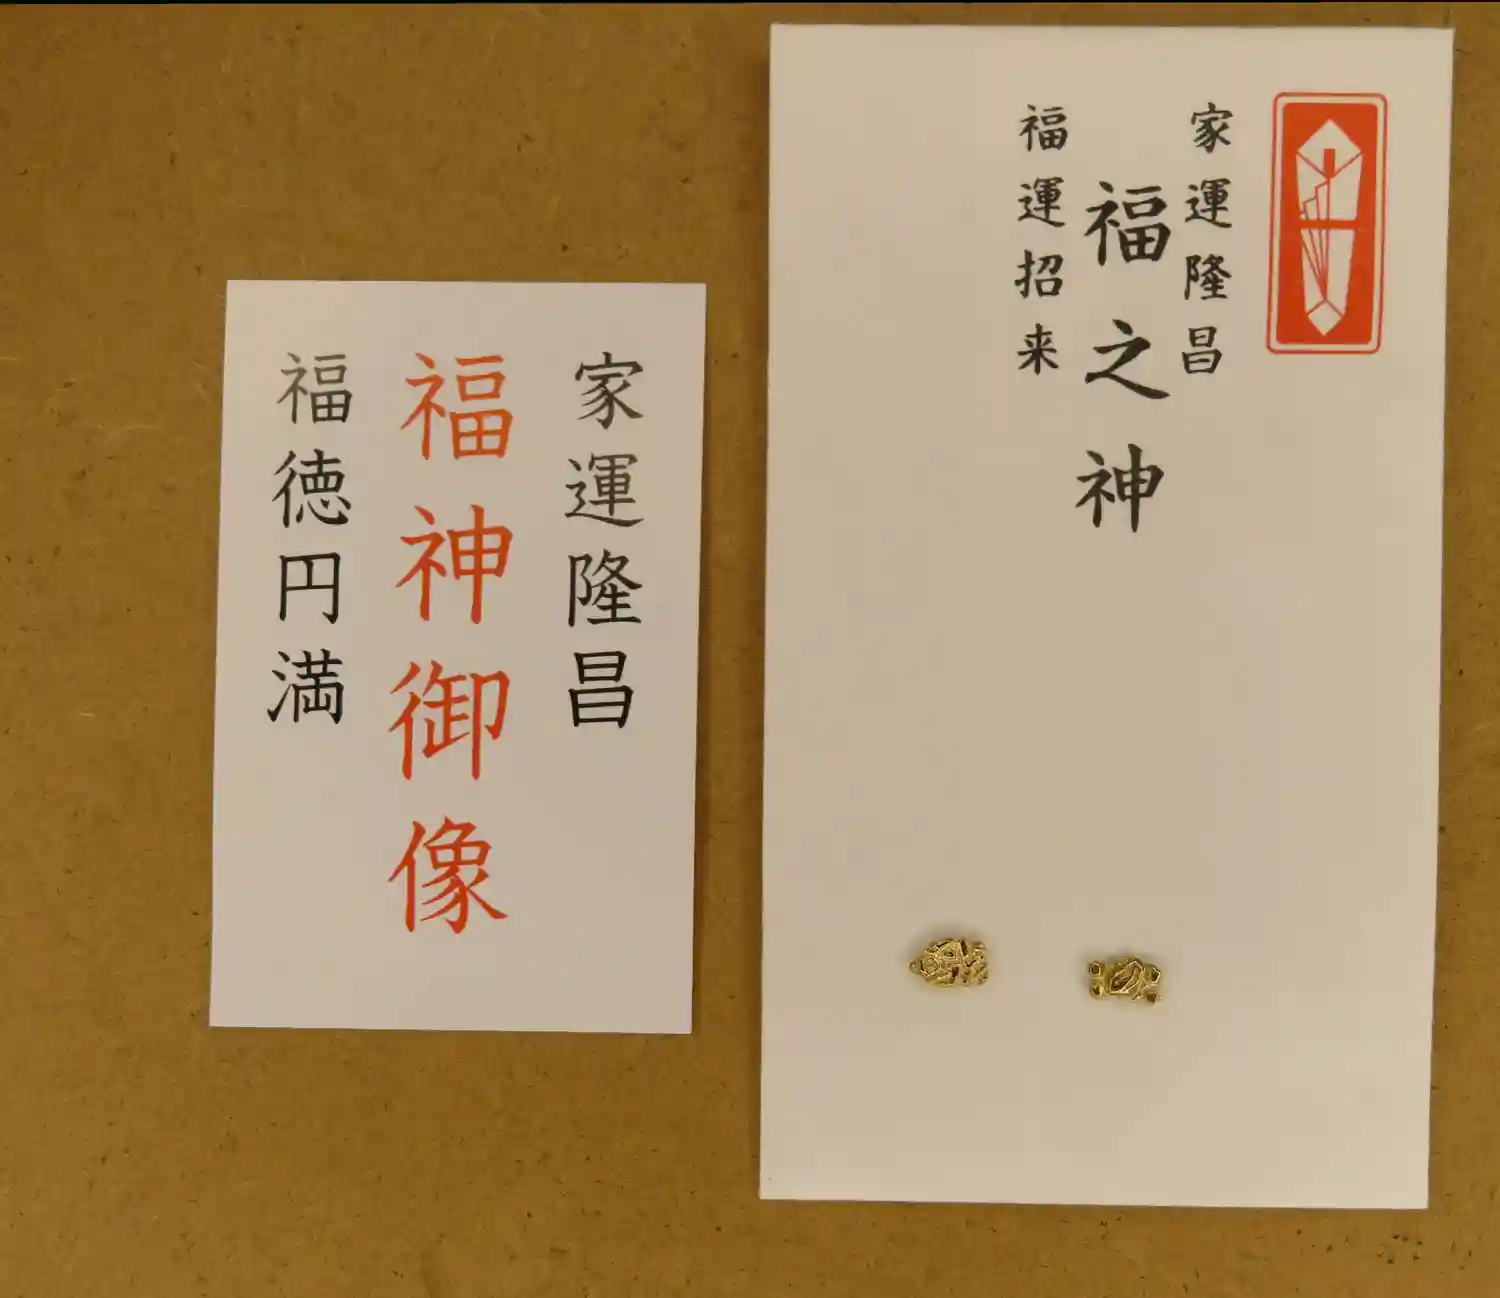 家運隆昌
福神御像
福徳円満
家運隆昌
福之神
福運招来